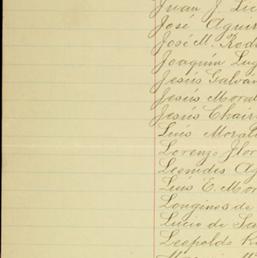 Juan J.
José Aguir
José M. Rod
Joaquín Lug
Jesús Galvá
Jesús Mora
Jesús Chair
Luis Moral
Lorenzo Flor
Leonides Ag
Luis E. Mor
Longinos de
Lucio de Sa
Leopoldo R